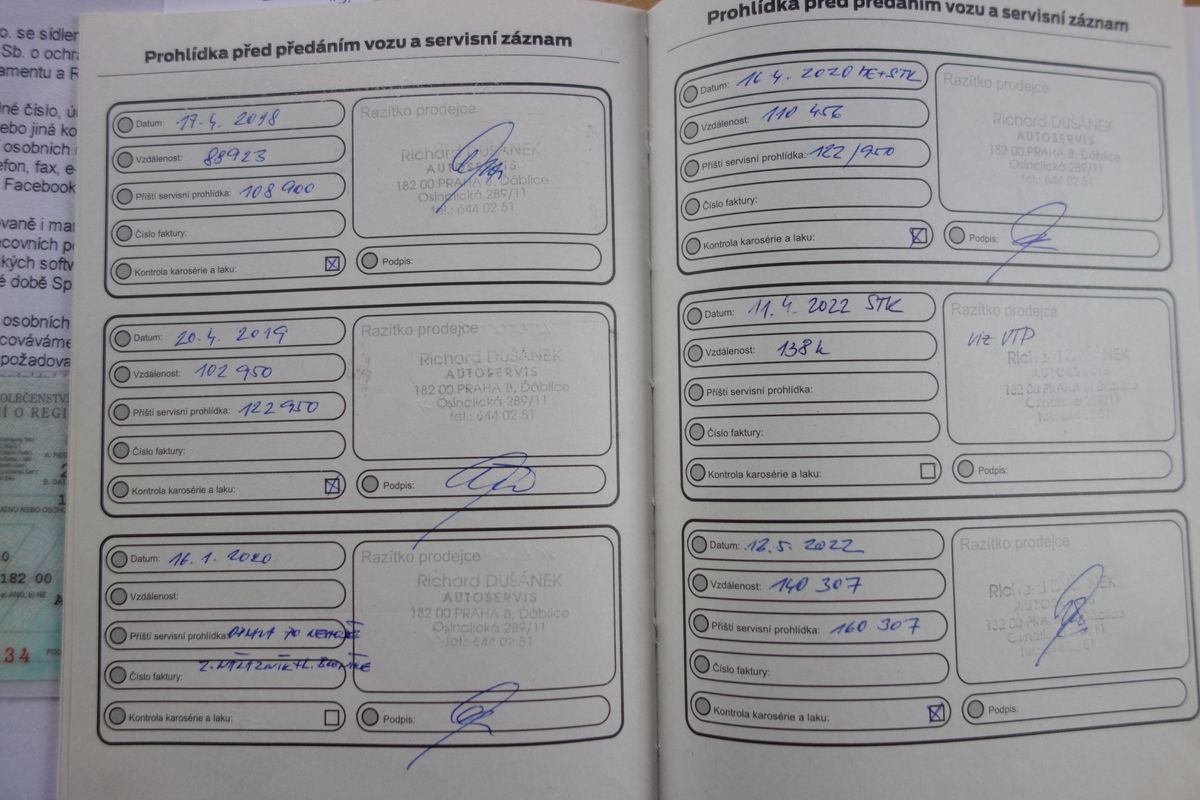 o. se sídlem
Sb. o ochra
amentu a R
né číslo, úd
ebo jiná ko
osobních
efon, fax, e-
Facebook
vaně i mar
covních po
kých softw
é době Sp
osobních
cováváme
požadova
OLEČENSTV
Í O REGI
182 00
34
Prohlídka před předáním vozu a servisní záznam
Datum: 17.4. 2018
Vzdálenost: 88923
Příští servisní prohlídka: 108 900
Číslo faktury:
Kontrola karosérie a laku: X
Razítko prodejce
Richard DUŠÁNEK
AUTOSERVIS
182 00 PRAHA 8, Ďáblice
Osinalická 289/11
tel.: 644 02 51
Podpis:
Datum: 20.4. 2019
Vzdálenost: 102 950
Příští servisní prohlídka: 122 950
Číslo faktury:
Kontrola karosérie a laku: X
Razítko prodejce
Richard DUŠÁNEK
AUTOSERVIS
182 00 PRAHA 8, Ďáblice
Osinalická 289/11
tel.: 644 02 51
Podpis:
Datum: 16.1. 2020
Vzdálenost:
Příští servisní prohlídka: PO
Číslo faktury:
Kontrola karosérie a laku:
Razítko prodejce
Richard DUŠÁNEK
AUTOSERVIS
182 00 PRAHA 8, Ďáblice
Osinalická 289/11
tel.: 644 02 51
Podpis:
Prohlídka před předáním vozu a servisní záznam
Datum: 16.4. 2020 ME+STK
Vzdálenost: 110 456
Příští servisní prohlídka: 122/950
Číslo faktury:
Kontrola karosérie a laku: X
Razítko prodejce
Richard DUŠÁNEK
AUTOSERVIS
182 00 PRAHA 8, Ďáblice
Osinalická 289/11
tel.: 644 02 51
Podpis:
Datum: 11.4. 2022 STK
Vzdálenost: 138k
Příští servisní prohlídka:
Číslo faktury:
Kontrola karosérie a laku:
Razítko prodejce
viz VTP
Richard DUŠÁNEK
AUTOSERVIS
182 00 PRAHA 8, Ďáblice
Osinalická 289/11
tel.: 644 02 51
Podpis:
Datum: 12.5. 2022
Vzdálenost: 140 307
Příští servisní prohlídka: 160 307
Číslo faktury:
Kontrola karosérie a laku: X
Razítko prodejce
Richard DUŠÁNEK
Podpis: